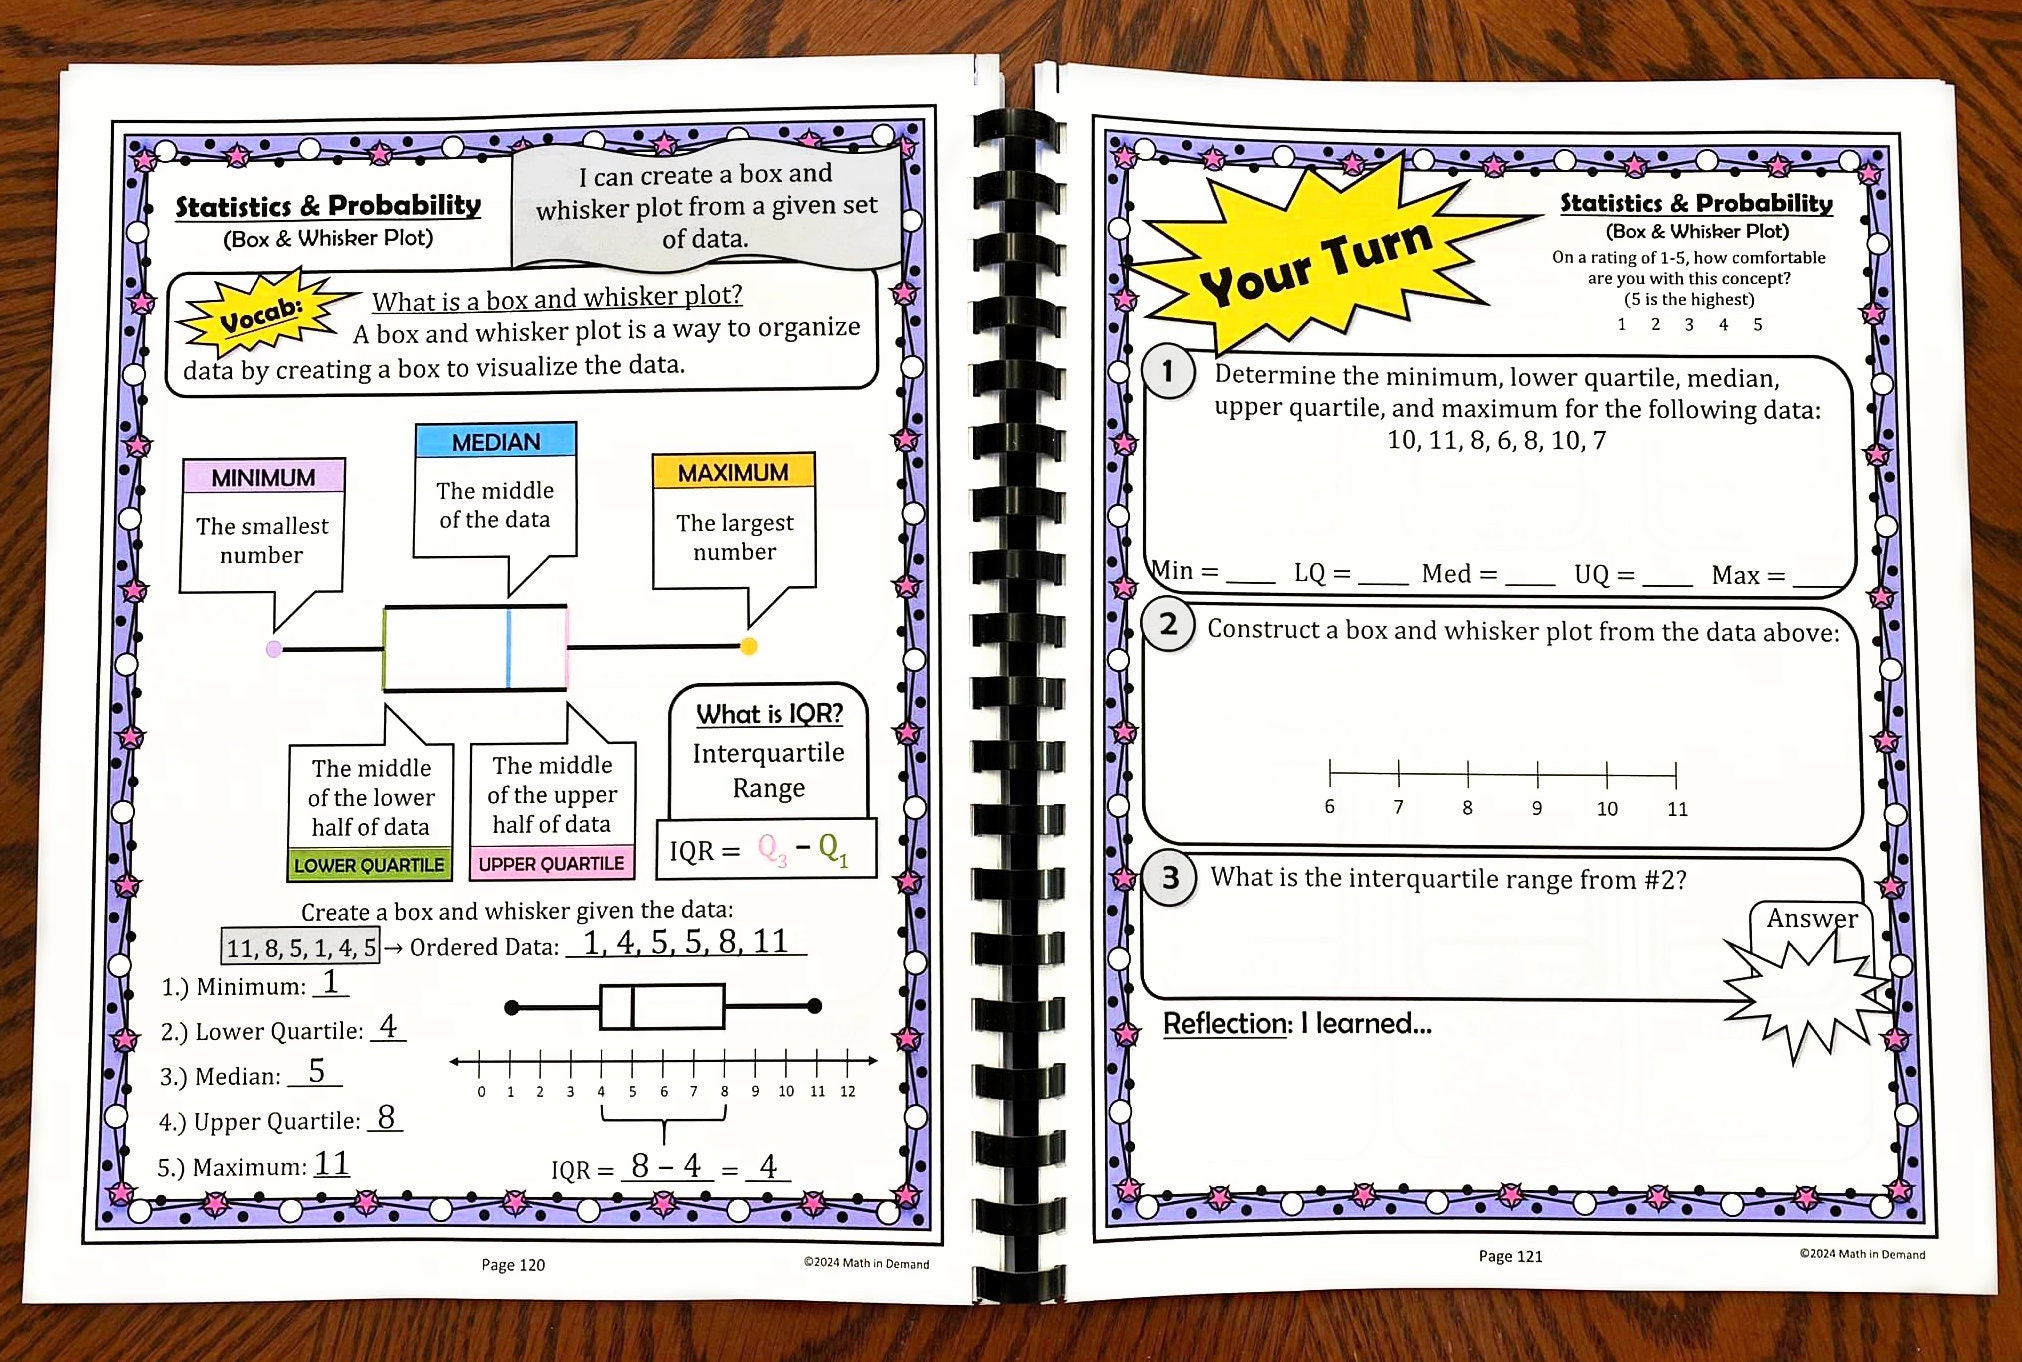 Statistics & Probability
(Box & Whisker Plot)
I can create a box and
whisker plot from a given set
of data.
Vocab:
What is a box and whisker plot?
A box and whisker plot is a way to organize
data by creating a box to visualize the data.
MINIMUM
The smallest
number
MEDIAN
The middle
of the data
MAXIMUM
The largest
number
The middle
of the lower
half of data
LOWER QUARTILE
The middle
of the upper
half of data
UPPER QUARTILE
What is IQR?
Interquartile
Range
IQR = Q3 – Q1
Create a box and whisker given the data:
11, 8, 5, 1, 4, 5 → Ordered Data: 1, 4, 5, 5, 8, 11
1.) Minimum: 1
2.) Lower Quartile: 4
3.) Median: 5
4.) Upper Quartile: 8
5.) Maximum: 11
0 1 2 3 4 5 6 7 8 9 10 11 12
IQR = 8 – 4 = 4
Page 120
©2024 Math in Demand
Your Turn
Statistics & Probability
(Box & Whisker Plot)
On a rating of 1-5, how comfortable
are you with this concept?
(5 is the highest)
1 2 3 4 5
1 Determine the minimum, lower quartile, median,
upper quartile, and maximum for the following data:
10, 11, 8, 6, 8, 10, 7
Min = ____ LQ = ____ Med = ____ UQ = ____ Max = ____
2 Construct a box and whisker plot from the data above:
6 7 8 9 10 11
3 What is the interquartile range from #2?
Answer
Reflection: I learned...
Page 121
©2024 Math in Demand